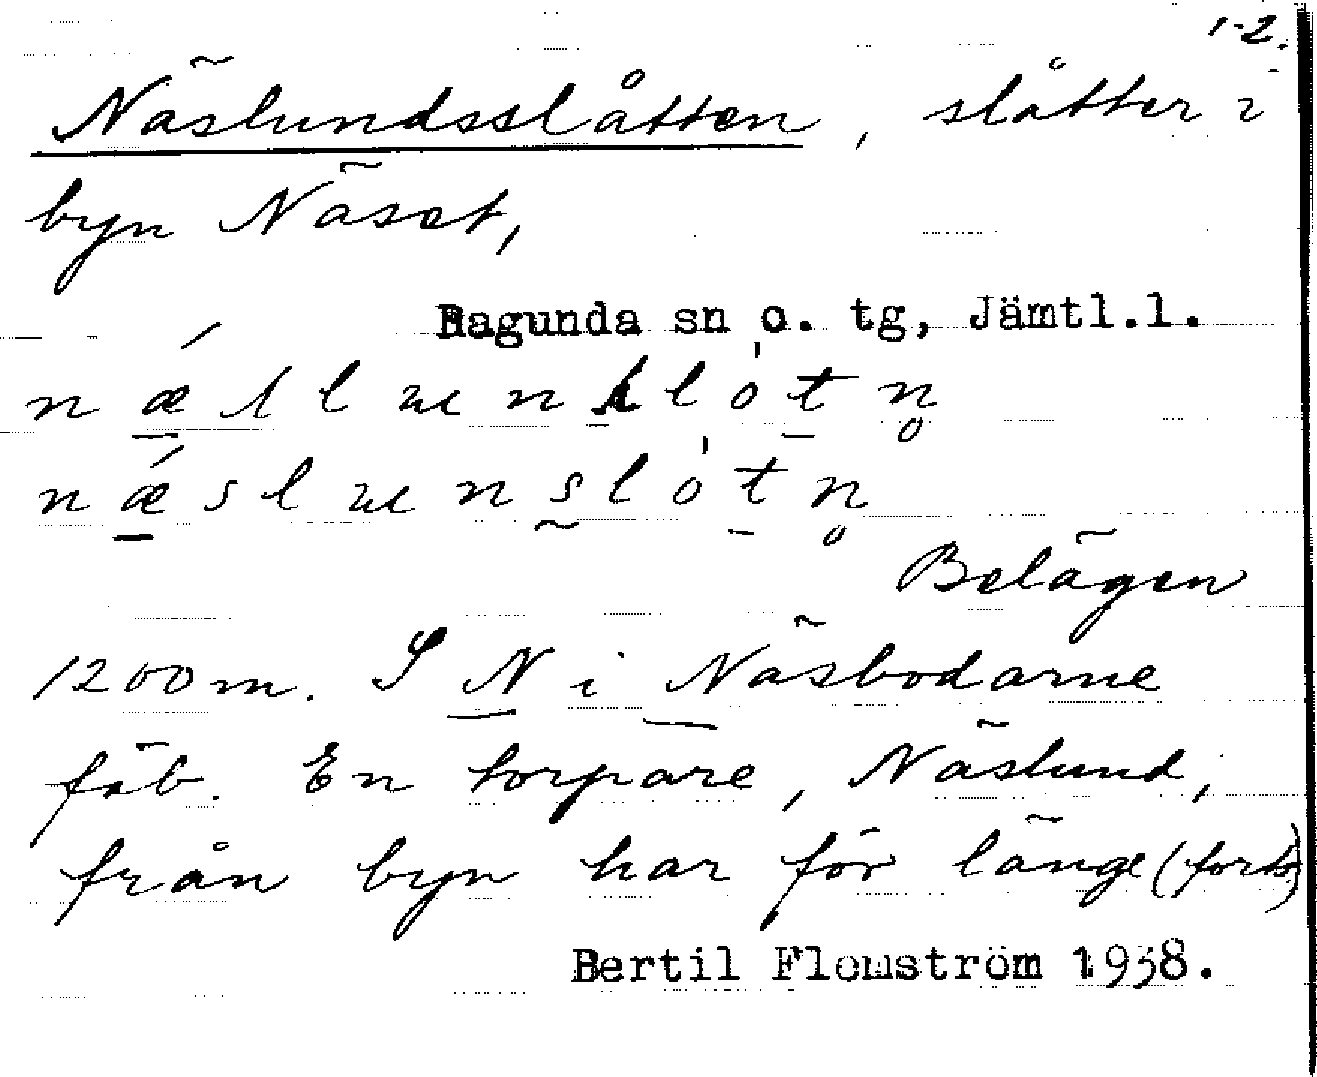 1-2.
Näslundsslåtten, slåtter i
byn Näset,
Ragunda sn o. tg, Jämtl.l.
Belägen
1200 m. S N i Näsbodarne
fäb. En torpare, Näslund,
från byn har för länge (forts)
Bertil Flemström 1938.